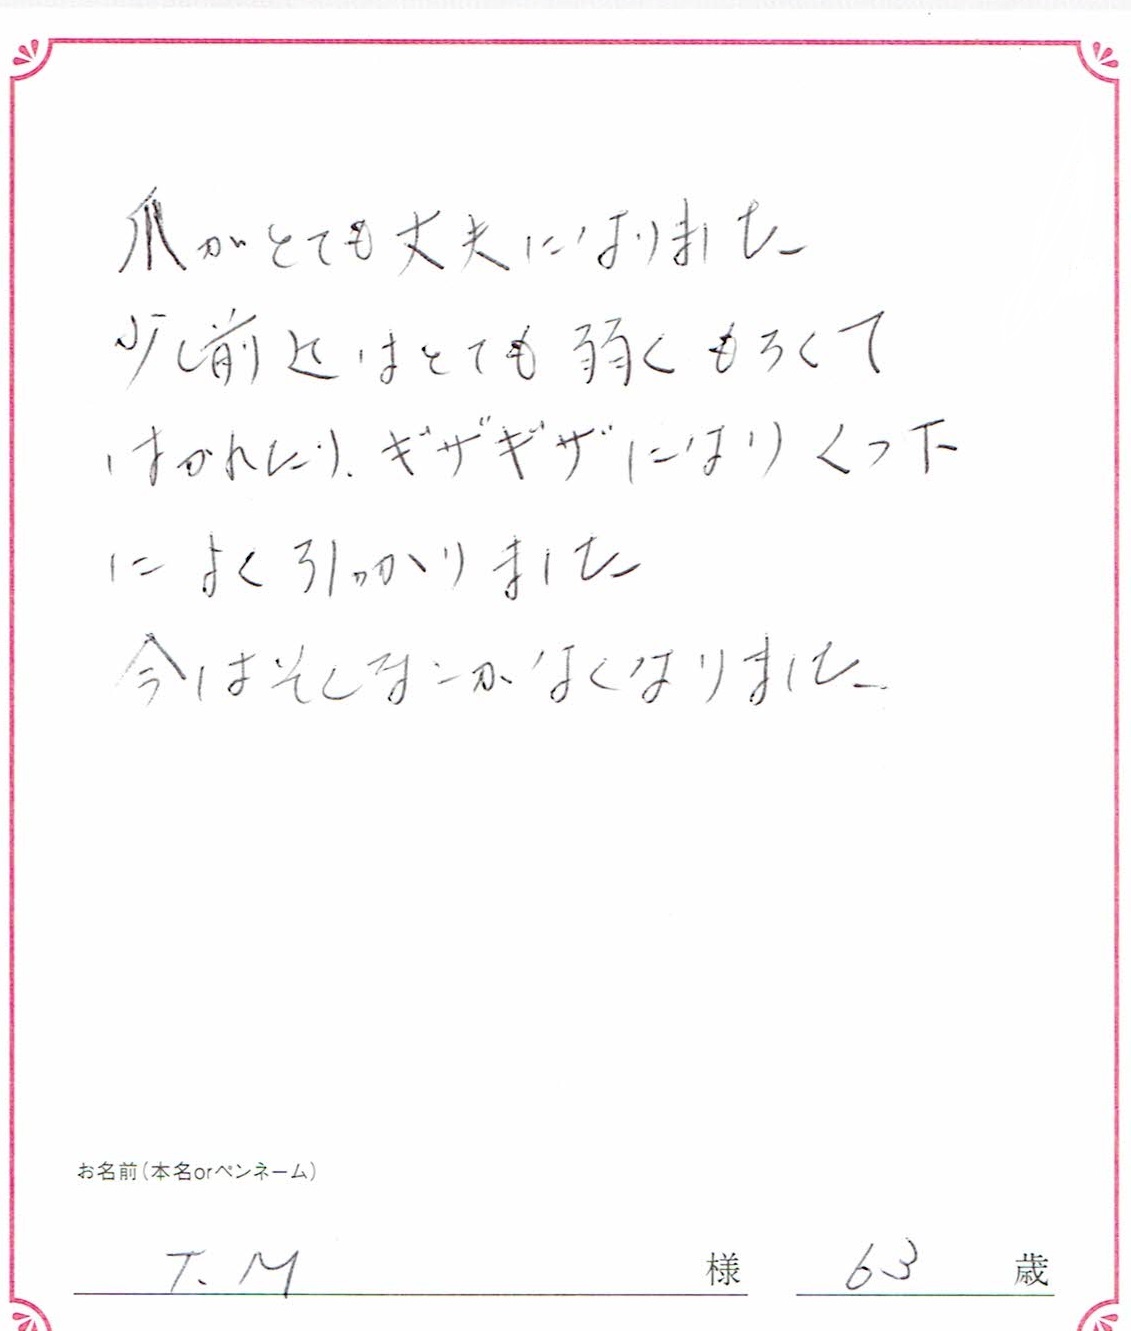 爪がとても丈夫になりました
少し前迄はとても弱くもろくて
はがれたり、ギザギザになりくつ下
によく引っかりました
今はそんな事がなくなりました
お名前(本名orペンネーム)
T.M 様 63 歳